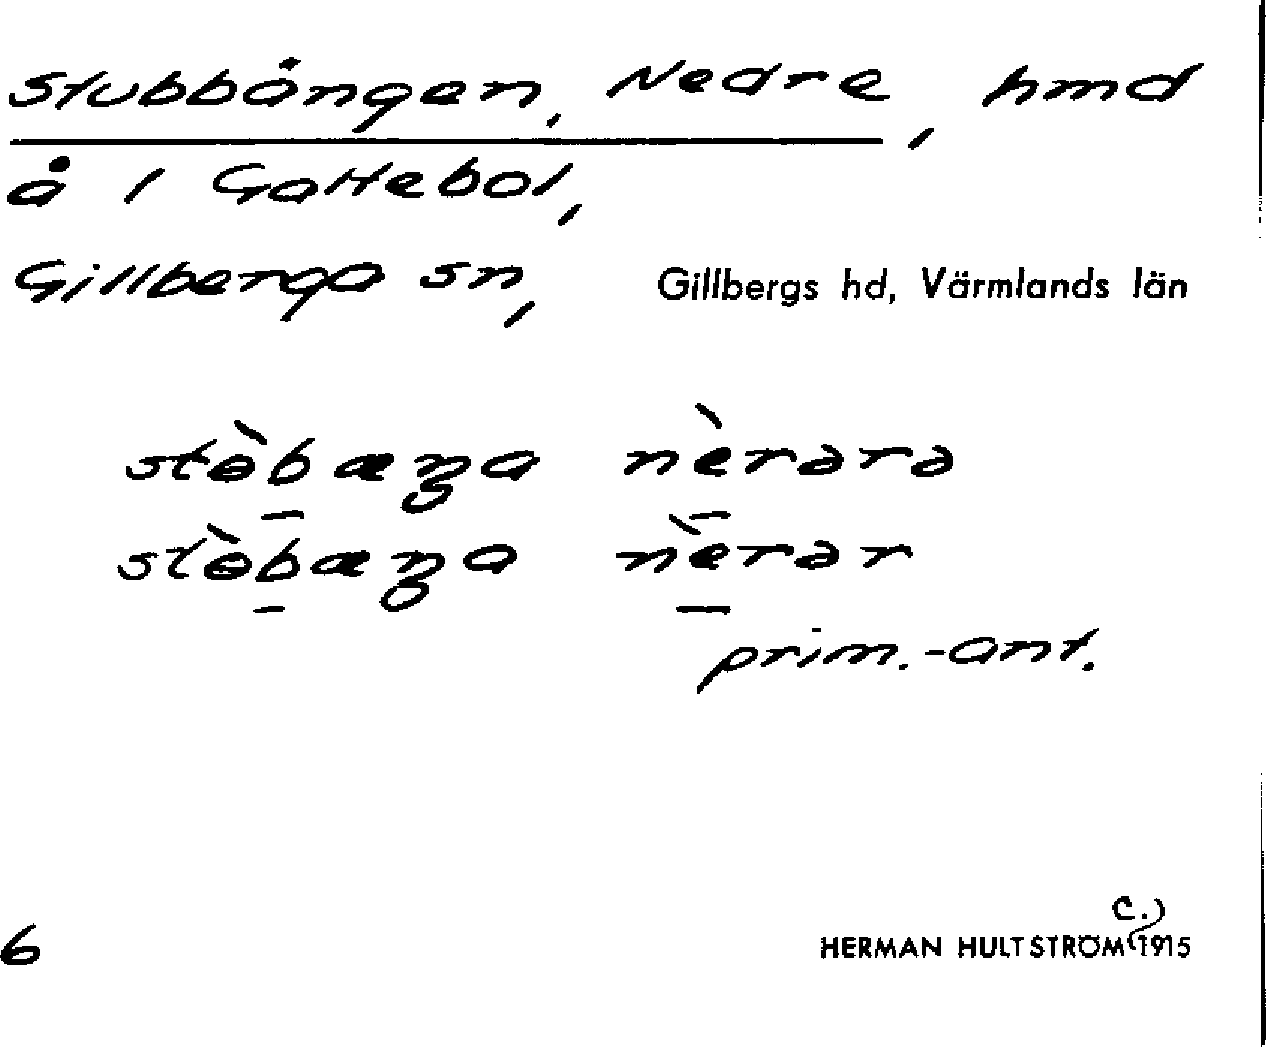 Stubbängen, Nedre, hmd
å 1 Gottebol,
Gillberga sn, Gillbergs hd, Värmlands län
stɵ̀bæŋa nèrərə
stɵ̀bæŋa nèrər
prim.-ant.
c.)
6 HERMAN HULTSTRÖM 1915